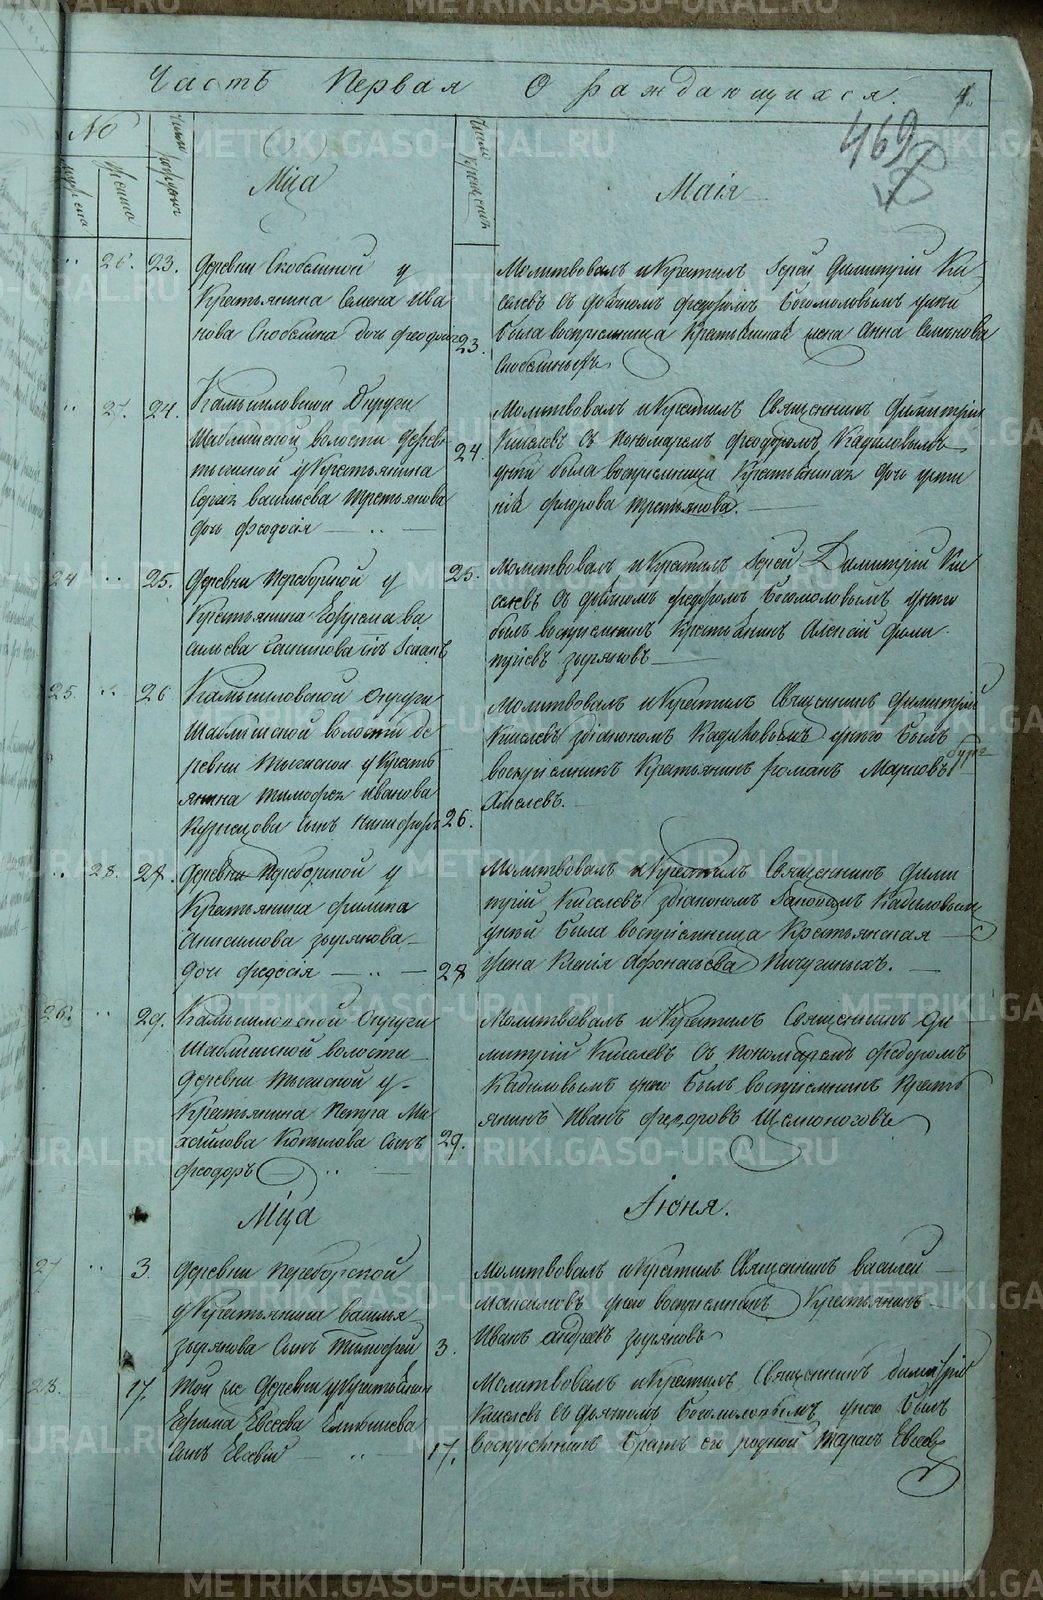 Часть Первая О раждающихся. 4.
469
№
мужеска
женска
Число рожденія
Число крещенія
Мца
Маія
26. 23. Деревни Скобелиной у
Крестьянина Семена Ива
нова Скобелина дочь Феодосія
23.
Молитвовалъ и Крестилъ Іерей Димитрій Ки
селевъ съ дьякомъ Федоромъ Богомоловымъ у нея
была воспріемница Крестьянская жена Анна Семенова
Скобелиныхъ
27. 24. Камышловской Округи
Шаблишской волости дерев
тыгиской у Крестьянина
Сергея Васильева Третьякова
дочь Феодосія
24.
Молитвовалъ и Крестилъ Священникъ Димитрій
Киселевъ съ пономаремъ Феодоромъ Кадиловымъ
у ней была воспріемница Крестьянская дочь Евге
нія Флорова Третьякова.
24 25. Деревни Переборной у
Крестьянина Ефрема Ва
сильева сынъ Исаакъ
25.
Молитвовалъ и Крестилъ Іерей Димитрій Ки
селевъ съ дьякомъ Федоромъ Богомоловымъ у него
былъ воспріемникъ Крестьянинъ Алексій Фили
пповъ Зыряновъ
25. 26 Камышловской Округи
Шаблишской волости де
ревни Тыгиской у Кресть
янина Тимофея Иванова
Кузнецова сынъ Никифоръ
26.
Молитвовалъ и Крестилъ Священникъ Димитрій
Киселевъ з діакономъ Кадиловымъ у него былъ
воспріемникъ Крестьянинъ Романъ Марковъ
Хмелевъ.
28. 28. Деревни Переборной у
Крестьянина Филипа
Анисимова Зырянова
дочь Федосія
28
Молитвовалъ и Крестилъ Священникъ Дими
трій Киселевъ з діакономъ Іаковомъ Кадиловымъ
у ней была воспріемница Крестьянская
жена Ксенія Афонасьева Кичугиныхъ.
26. 29. Камышловской Округи
Шаблишской волости
Деревни Тыгиской у
Крестьянина Петра Ми
хайлова Копылова сынъ
Феодоръ
29.
Молитвовалъ и Крестилъ Священникъ Ди
митрій Киселевъ съ пономаремъ Федоромъ
Кадиловымъ у него былъ воспріемникъ Кресть
янинъ Иванъ Федоровъ Щелконоговъ
Мца
Іюня.
27 3. Деревни Переборской
у Крестьянина Василья
Зырянова сынъ Тимофей
3.
Молитвовалъ и Крестилъ Священникъ Василей
Максимовъ у него воспріемникъ Крестьянинъ
Иванъ Андреевъ Зыряновъ
28. 17. Той же деревни у Крестьянина
Ефима Евсеева
сынъ Евсевій
17.
Молитвовалъ и Крестилъ Священникъ Димитрій
Киселевъ съ дьякомъ Богомоловымъ у него былъ
воспріемникъ братъ его родной Тарасъ Евсеевъ
METRIKI.GASO-URAL.RU